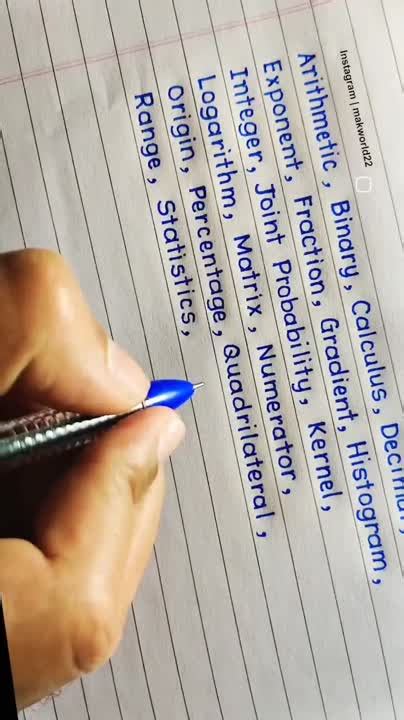 Instagram | makworld22
Arithmetic, Binary, Calculus, Decimal,
Exponent, Fraction, Gradient, Histogram,
Integer, Joint Probability, Kernel,
Logarithm, Matrix, Numerator,
Origin, Percentage, Quadrilateral,
Range, Statistics,